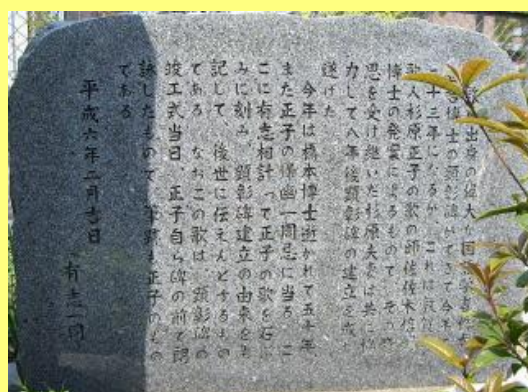 出身の偉大な国
博士の顕彰碑ができて今年
二十三年になるが、これは
歌人杉原正子の歌の師佐佐木信
博士の発案によるもので、その
思を受け継いだ杉原夫妻は共に協
力して八年後顕彰碑の建立を成し
遂げた
今年は橋本博士逝かれて五十年
また正子の帰幽一周忌に当る こ
こに有志相計って正子の歌を石
に刻み、顕彰碑建立の由来を
記して、後世に伝えんとするもの
である なおこの歌は、顕彰碑の
竣工式当日、正子自ら碑の前で朗
詠したもので、筆跡も正子のもの
である
平成六年二月吉日
有志一同